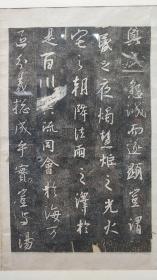 懇誠而
顯豈謂
之夜燭慧炬之光火
宅之朝降法雨之澤於
是百川異流同會於海萬
區分義總成乎實豈與湯